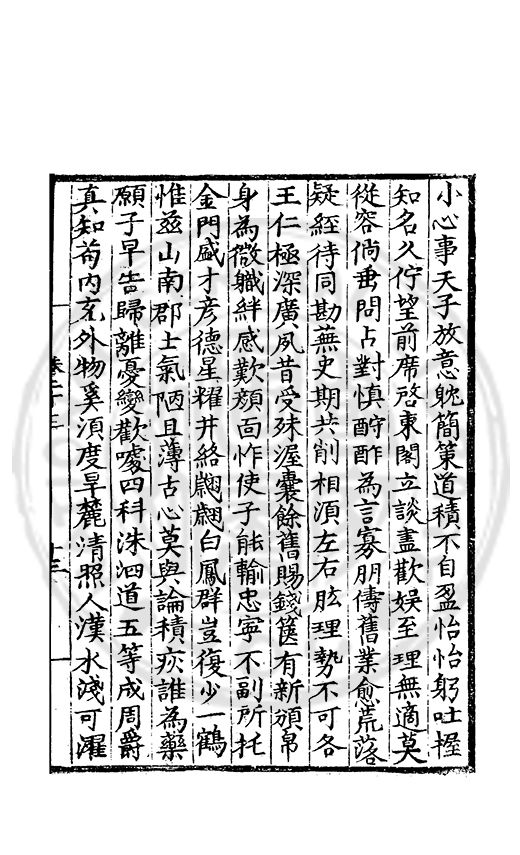 小心事天子放意躭簡策道積不自盈怡怡躬吐握
知名久佇望前席啓東閣立談盡歡娱至理無適莫
從容倘垂問占對慎酧酢為言寡朋儔舊業愈荒落
疑經待同勘蕪史期共削相湏左右肱理勢不可各
王仁極深廣夙昔受殊渥囊餘舊賜錢篋有新頒帛
身為微軄絆感歎顔面怍使子能輸忠寧不副所托
金門盛才彦德星耀井絡翩翩白鳳群豈復少一鶴
惟兹山南郡士氣陋且薄古心莫與論積疢誰為藥
願子早告歸離憂變歡噱四科洙泗道五等成周爵
真知茍内充外物奚湏度旱麓清照人漢水淺可濯
卷二十三
十三